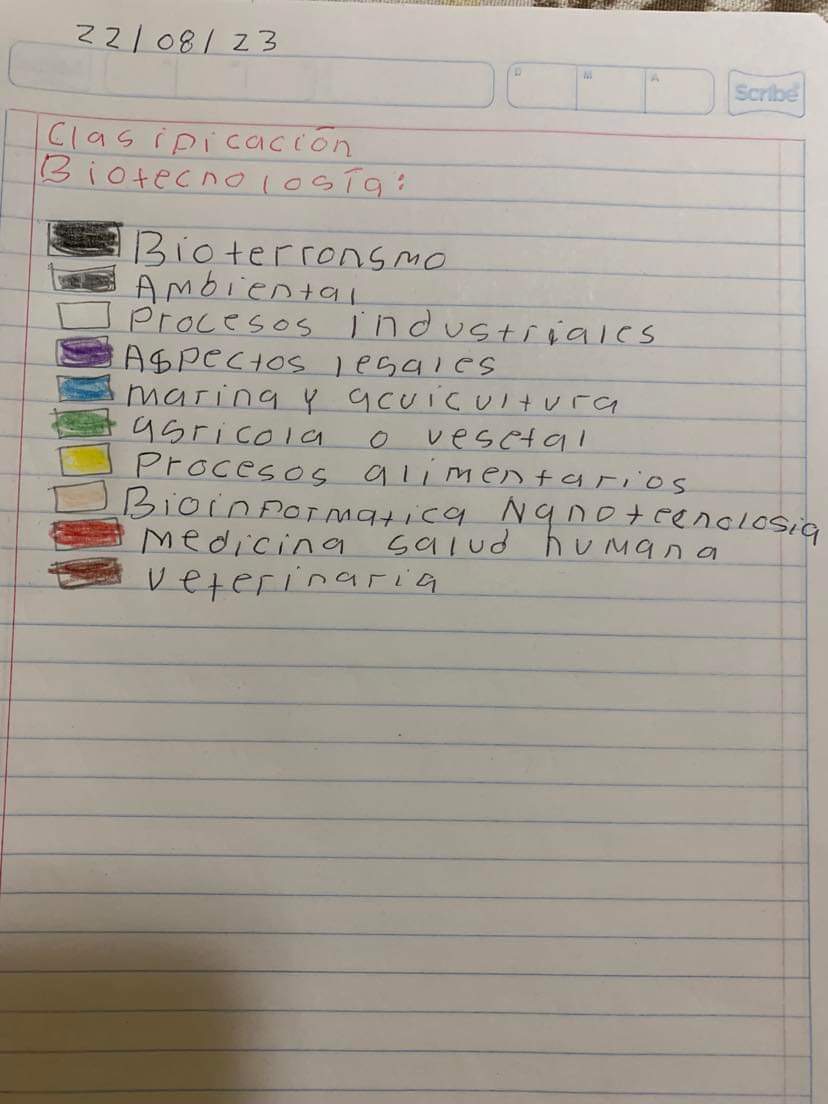 22/08/23
D M A
Scribe
Clasificación
Biotecnología:
Bioterrorismo
Ambiental
Procesos industriales
Aspectos legales
marina y acuicultura
agricola o vegetal
Procesos alimentarios
Bioinformatica Nanotecnologia
Medicina salud humana
veterinaria